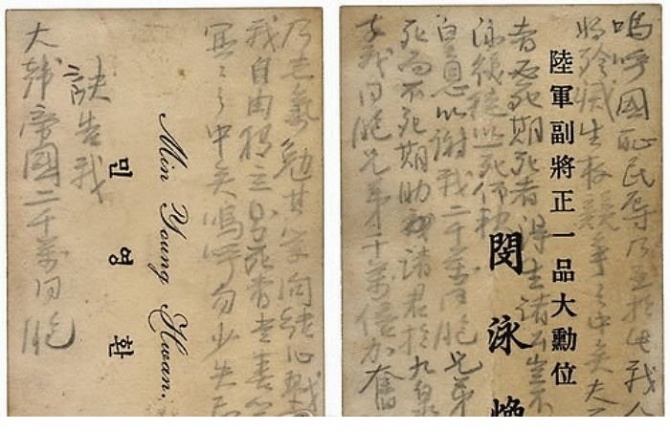 嗚呼國恥民辱乃至於此我人
將殄滅生存競爭之中矣夫
陸軍副將正一品大勳位
者必死期死者得生諸公豈不
泳煥徒以一死仰報
閔泳煥
皇恩以謝我二千萬同胞兄弟
死而不死期助諸君於九泉
幸我同胞兄弟千萬億加奮
乃志氣勉其學問結心戮
我自由獨立則死者當喜笑
冥々之中矣嗚呼勿少失
Min Young Hwan.
민영환
訣告我
大韓帝國二千萬同胞